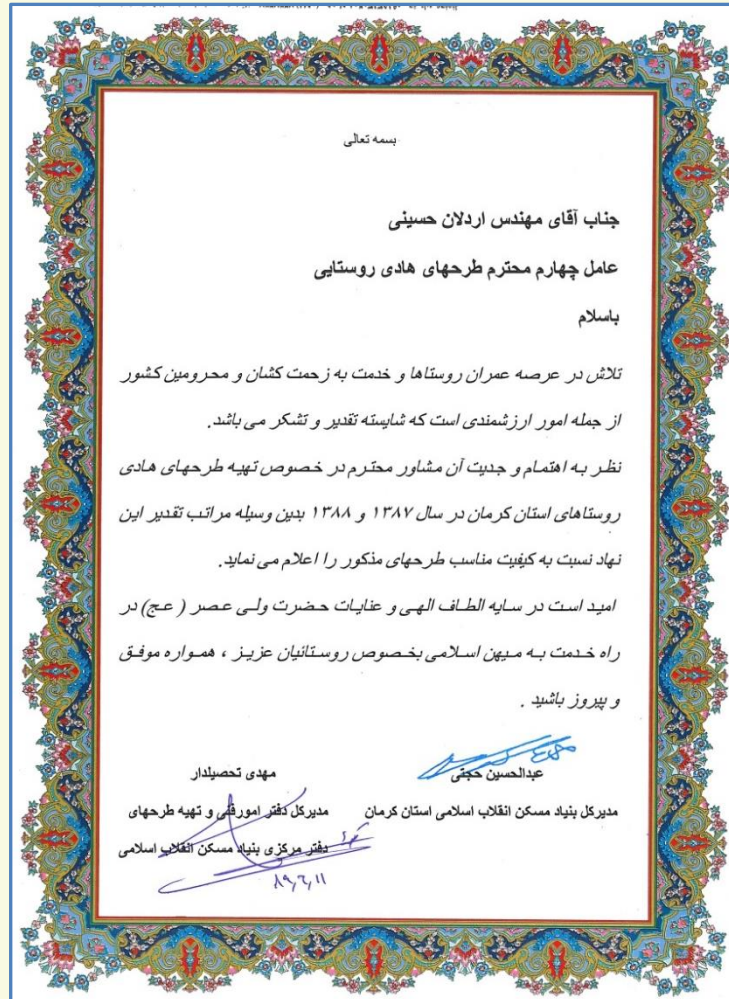 بسمه تعالی
جناب آقای مهندس اردلان حسینی
عامل چهارم محترم طرحهای هادی روستایی
باسلام
تلاش در عرصه عمران روستاها و خدمت به زحمت کشان و محرومین کشور
از جمله امور ارزشمندی است که شایسته تقدیر و تشکر می باشد.
نظر به اهتمام و جدیت آن مشاور محترم در خصوص تهیه طرحهای هادی
روستاهای استان کرمان در سال ۱۳۸۷ و ۱۳۸۸ بدین وسیله مراتب تقدیر این
نهاد نسبت به کیفیت مناسب طرحهای مذکور را اعلام می نماید.
امید است در سایه الطاف الهی و عنایات حضرت ولی عصر ( عج) در
راه خدمت به میهن اسلامی بخصوص روستائیان عزیز ، همواره موفق
و پیروز باشید .
عبدالحسین حجتی
مدیرکل بنیاد مسکن انقلاب اسلامی استان کرمان
مهدی تحصیلدار
مدیرکل دفتر امورفنی و تهیه طرحهای
دفتر مرکزی بنیاد مسکن انقلاب اسلامی